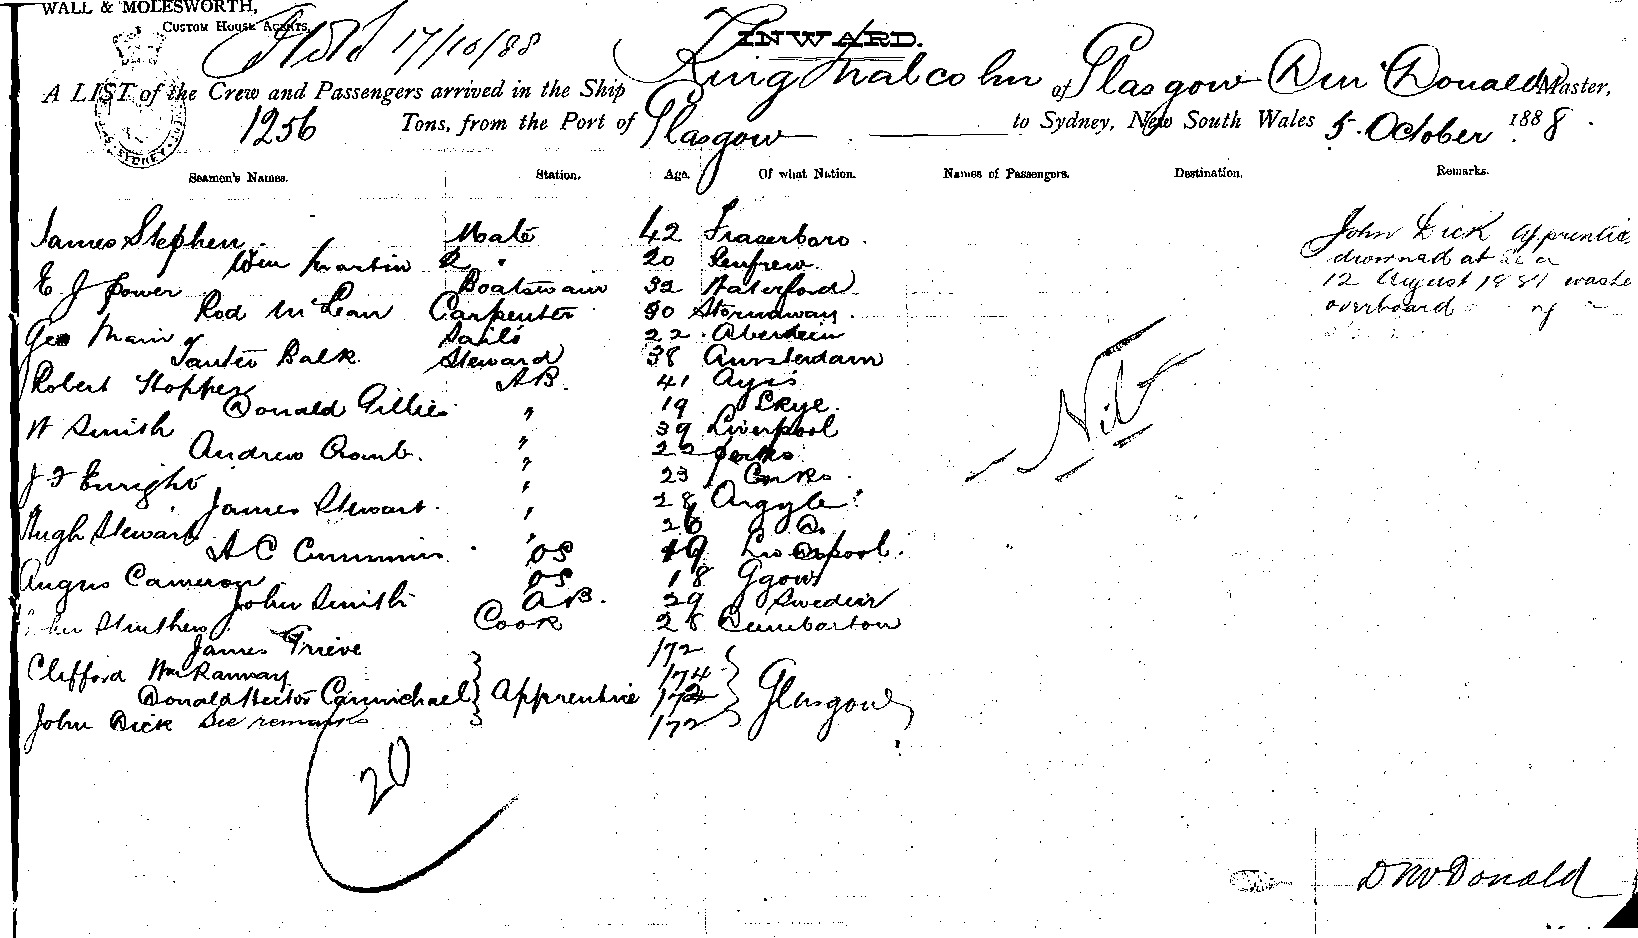 WALL & MOLESWORTH,
CUSTOM HOUSE AGENTS.
17/10/88
INWARD.
A LIST of the Crew and Passengers arrived in the Ship King Malcolm of Glasgow Dun McDonald Master,
1256 Tons, from the Port of Glasgow to Sydney, New South Wales 5 October 1888.
SYDNEY
Seamen's Names. Station. Age. Of what Nation. Names of Passengers. Destination. Remarks.
James Stephen Mate 42 Fraserboro
Wm Martin 2 " 20 Renfrew
E J Power Boatswain 32 Waterford
Rod McLean Carpenter 30 Stornaway
Geo Main Sails 22 Aberdein
Balk Steward 38 Amsterdam
Robert Hopper AB. 41 Ayr
Donald Gillies " 19 Skye
W Smith " 39 Liverpool
Andrew Cromb. " 22
J Enright " 23 Cork
James Stewart " 28 Argyle
Hugh Stewart " 26 Do
A C Cummins OS 19 Liverpool
Angus Cameron OS 18 Ggow
John Smith AB. 29 Sweden
Struthers Cook 28 Dumbarton
James Grieve 172
Clifford Wm Rannay 174
Donald Hector Carmichael Apprentice 172 Glasgow
John Dick See remarks 172
John Dick apprentice
drowned at sea
12 August 188 washed
overboard
Nil
20
D McDonald